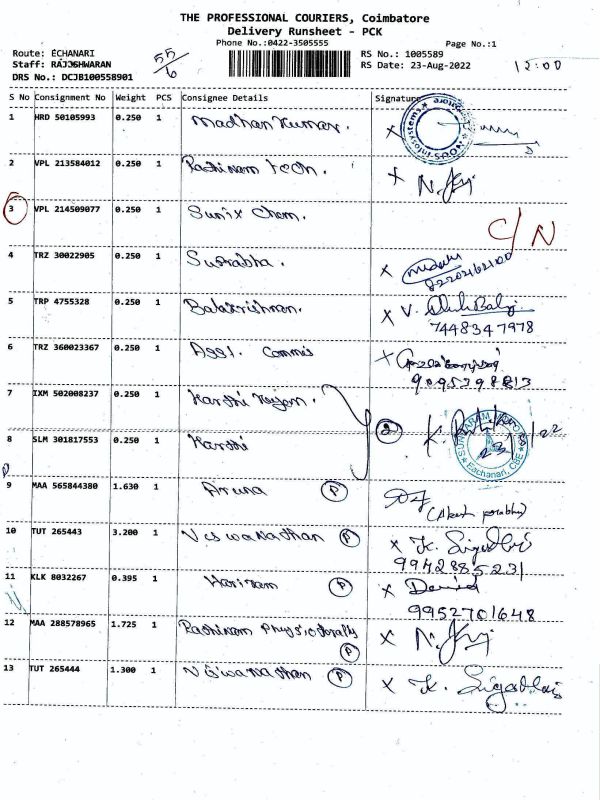 THE PROFESSIONAL COURIERS, Coimbatore
Delivery Runsheet - PCK
Phone No.:0422-3505555
Page No.:1
Route: ECHANARI
Staff: RAJJSHWARAN
DRS No.: DCJB100558901
55/6
RS No.: 1005589
RS Date: 23-Aug-2022
12:00
S No Consignment No Weight PCS Consignee Details Signature
1 HRD 50105993 0.250 1 Madhan Kumar.
2 VPL 213584012 0.250 1 Rathinam tech.
3 VPL 214509077 0.250 1 Sunix Chem. C/N
4 TRZ 30022905 0.250 1
8220262100
5 TRP 4755328 0.250 1 Balakrishnan. x V.
7448347978
6 TRZ 360023367 0.250 1 Asst. Commis
9095398813
7 IXM 502008237 0.250 1 Karthi
2
8 SLM 301817553 0.250 1 Karthi
Eachanari, CBE
9 MAA 565844380 1.630 1 Aruna P
10 TUT 265443 3.200 1 Viswanathan P x K.
9942885231
11 KLK 8032267 0.395 1 Hariram P x
9952701648
12 MAA 288578965 1.725 1 Rathinam P x
13 TUT 265444 1.300 1 Viswanathan P x K.